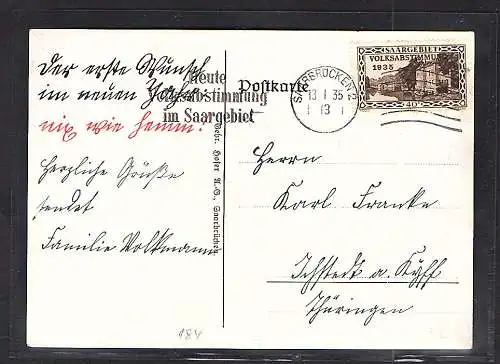 Der erste Wunsch
im neuen Jahre:
nix wie hemm!
Herzliche Grüße
sendet
Familie Volkmann
Heute
Volksabstimmung
im Saargebiet
Postkarte
Gebr. Hofer A.G., Saarbrücken
SAARBRÜCKEN 2
13 1 35
13
SAARGEBIET
VOLKSABSTIMMUNG
1935
40
Herrn
Karl Franke
Ichstedt a. Kyff
Thüringen
184